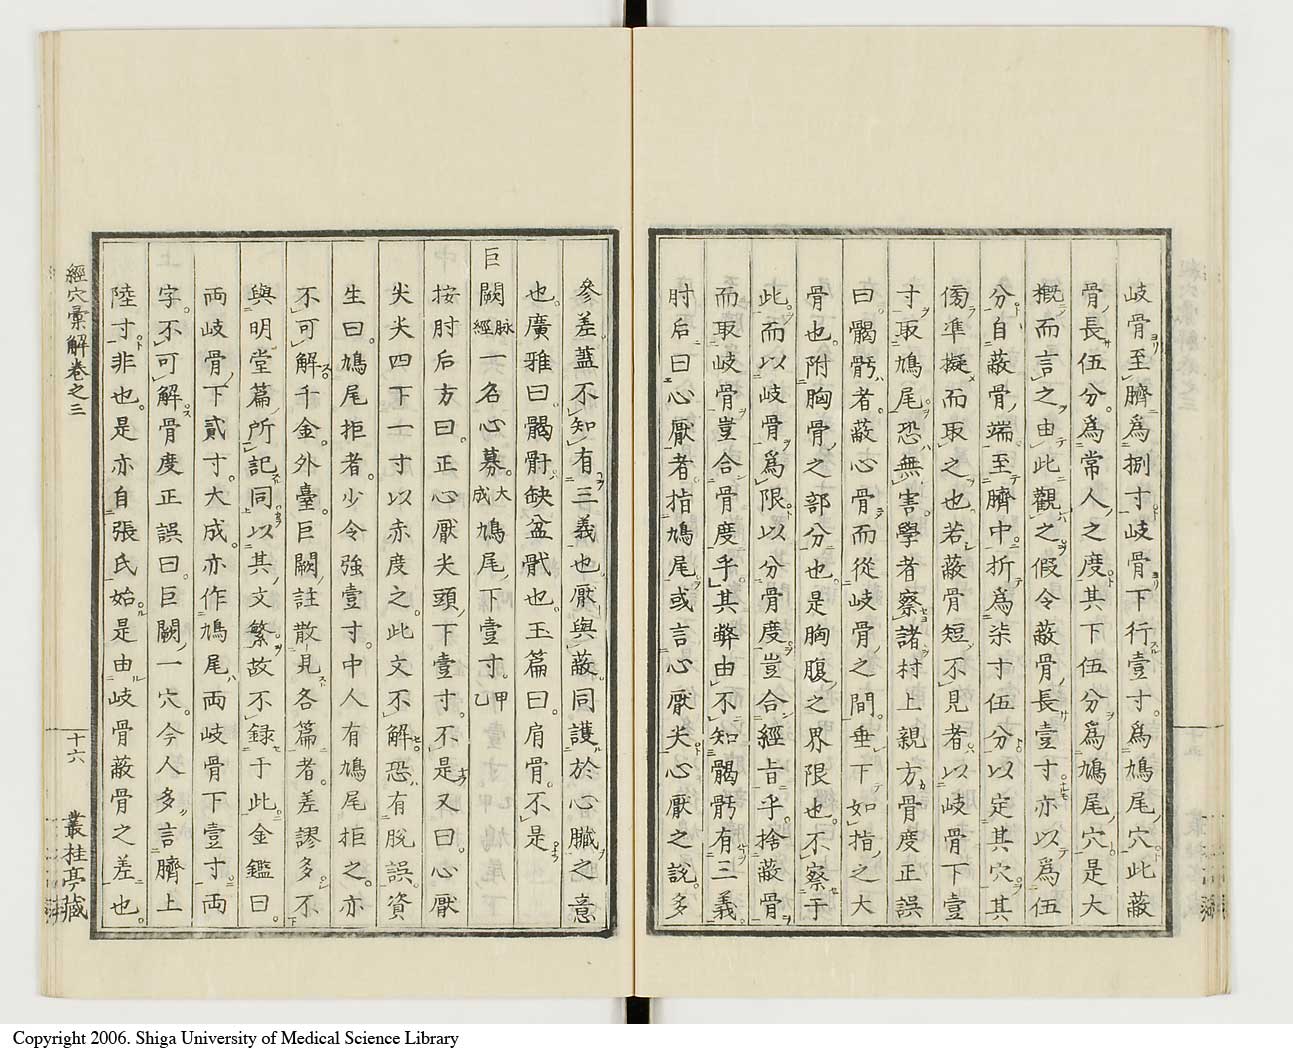 岐骨至臍爲捌寸岐骨下行壹寸爲鳩尾穴此蔽
骨長伍分爲常人之度其下伍分爲鳩尾穴是大
概而言之由此觀之假令蔽骨長壹寸亦以爲伍
分自蔽骨端至臍中折爲柒寸伍分以定其穴其
傍準擬而取之也若蔽骨短不見者以岐骨下壹
寸取鳩尾恐無害學者察諸村上親方骨度正誤
曰𩩲骬者蔽心骨而從岐骨之間垂下如指之大
骨也附胸骨之部分也是胸腹之界限也不察于
此而以岐骨爲限以分骨度豈合經旨乎捨蔽骨
而取岐骨豈合骨度乎其弊由不知𩩲骬有三義
肘后曰心厭者指鳩尾或言心厭尖心厭之說多
參差蓋不知有三義也厭與蔽同護於心臟之意
也廣雅曰𩩲骬缺盆骪也玉篇曰肩骨不是
巨闕脉經一名心募大成鳩尾下壹寸甲乙
按肘后方曰正心厭尖頭下壹寸不是又曰心厭
尖尖四下一寸以赤度之此文不解恐有脫誤資
生曰鳩尾拒者少令強壹寸中人有鳩尾拒之亦
不可解千金外臺巨闕註散見各篇者差謬多不
與明堂篇所記同以其文繁故不録于此金鑑曰
兩岐骨下貳寸大成亦作鳩尾兩岐骨下壹寸兩
字不可解骨度正誤曰巨闕一穴今人多言臍上
陸寸非也是亦自張氏始是由岐骨蔽骨之差也
經穴彙解卷之三
十六
叢桂亭藏
Copyright 2006. Shiga University of Medical Science Library